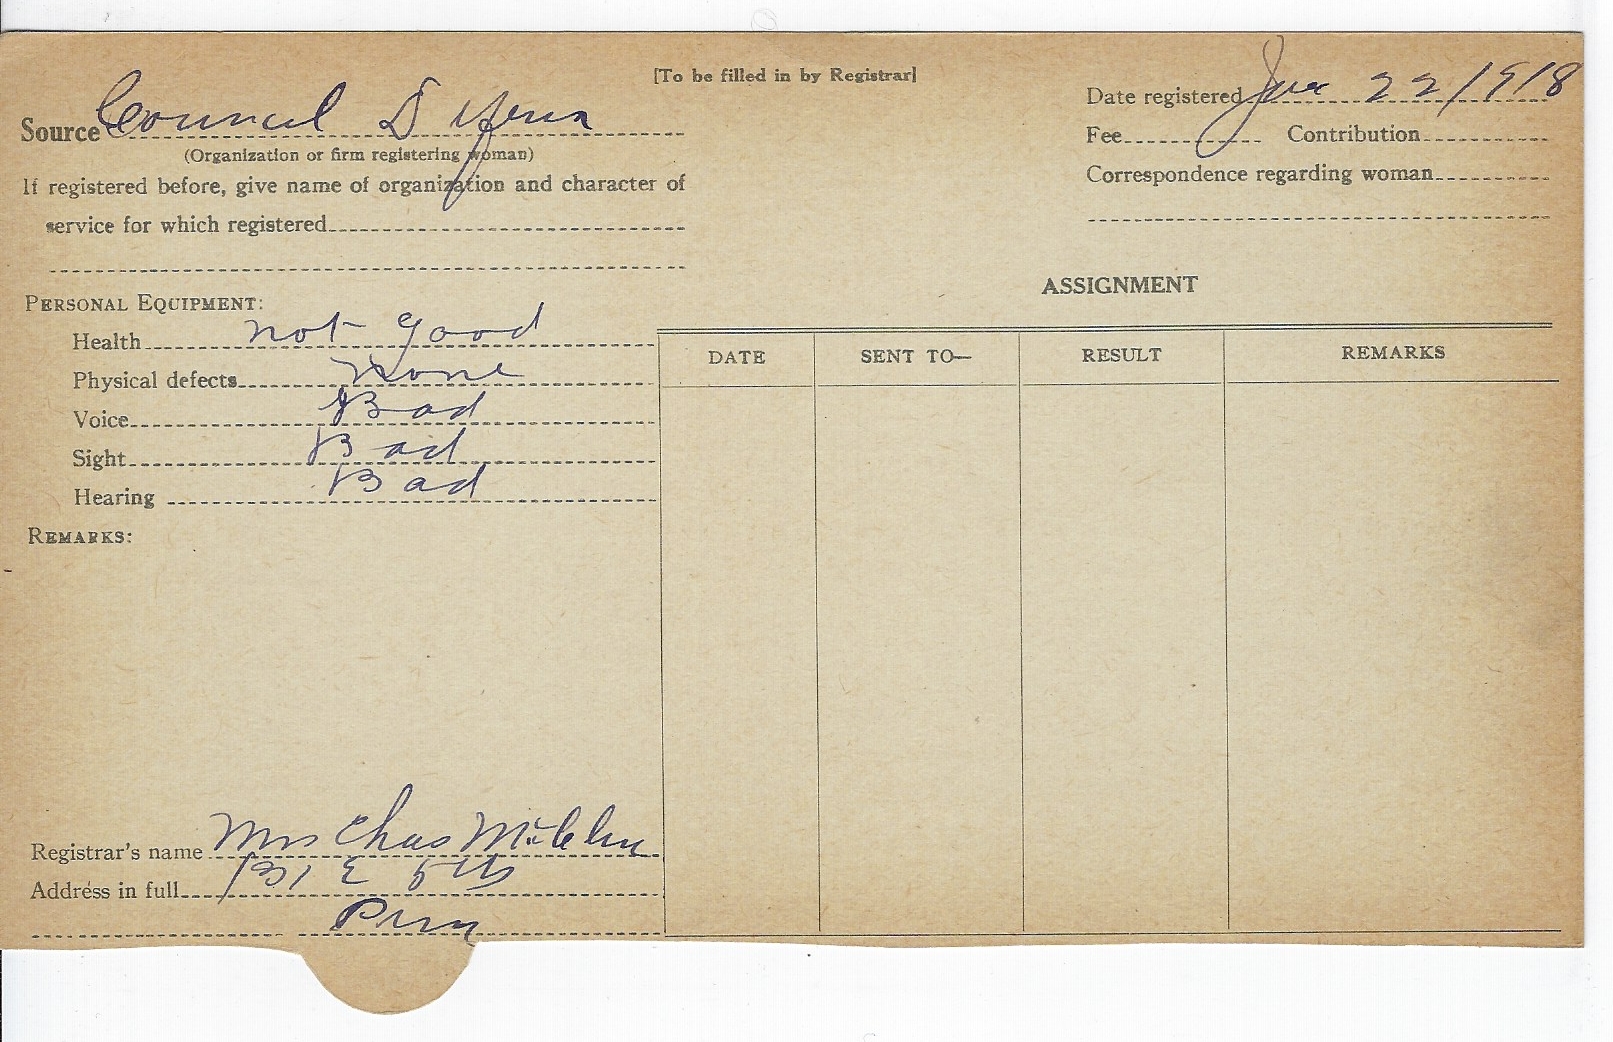 [To be filled in by Registrar]
Source Council D
(Organization or firm registering woman)
If registered before, give name of organization and character of
service for which registered
Date registered 22/1918
Fee Contribution
Correspondence regarding woman
PERSONAL EQUIPMENT:
Health not good
Physical defects None
Voice Bad
Sight Bad
Hearing Bad
REMARKS:
ASSIGNMENT
DATE SENT TO— RESULT REMARKS
Registrar's name Mrs Chas
Address in full 131 E 5th